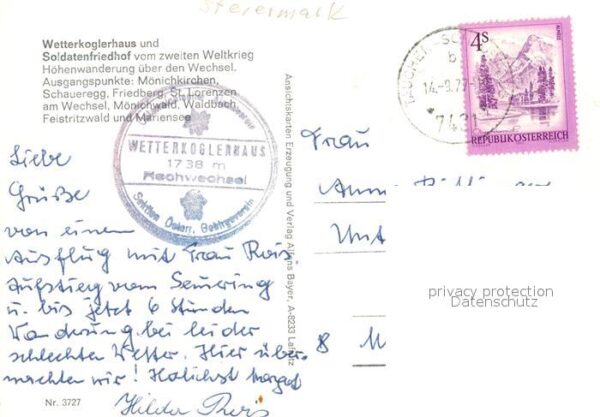 Steiermark
Wetterkoglerhaus und
Soldatenfriedhof vom zweiten Weltkrieg
Höhenwanderung über den Wechsel.
Ausgangspunkte: Mönichkirchen,
Schaueregg, Friedberg, St. Lorenzen
am Wechsel, Mönichwald, Waldbach,
Feistritzwald und Mariensee
WETTERKOGLERHAUS
1738 m
Hochwechsel
Sektion Österr. Gebirgsverein
Liebe
Grüße
von einem
Ausflug mit Frau Reis
Aufstieg vom Semmering
u. bis jetzt 6 Stunden
Wanderung bei leider
schlechten Wetter. Hier über-
nachten wir! Herzlichst Margot
Hilda Reis
Nr. 3727
Ansichtskarten Erzeugung und Verlag Alfons Bayer, A-8233 Lafnitz
4S
REPUBLIK ÖSTERREICH
7421
Frau
privacy protection
Datenschutz
8 M